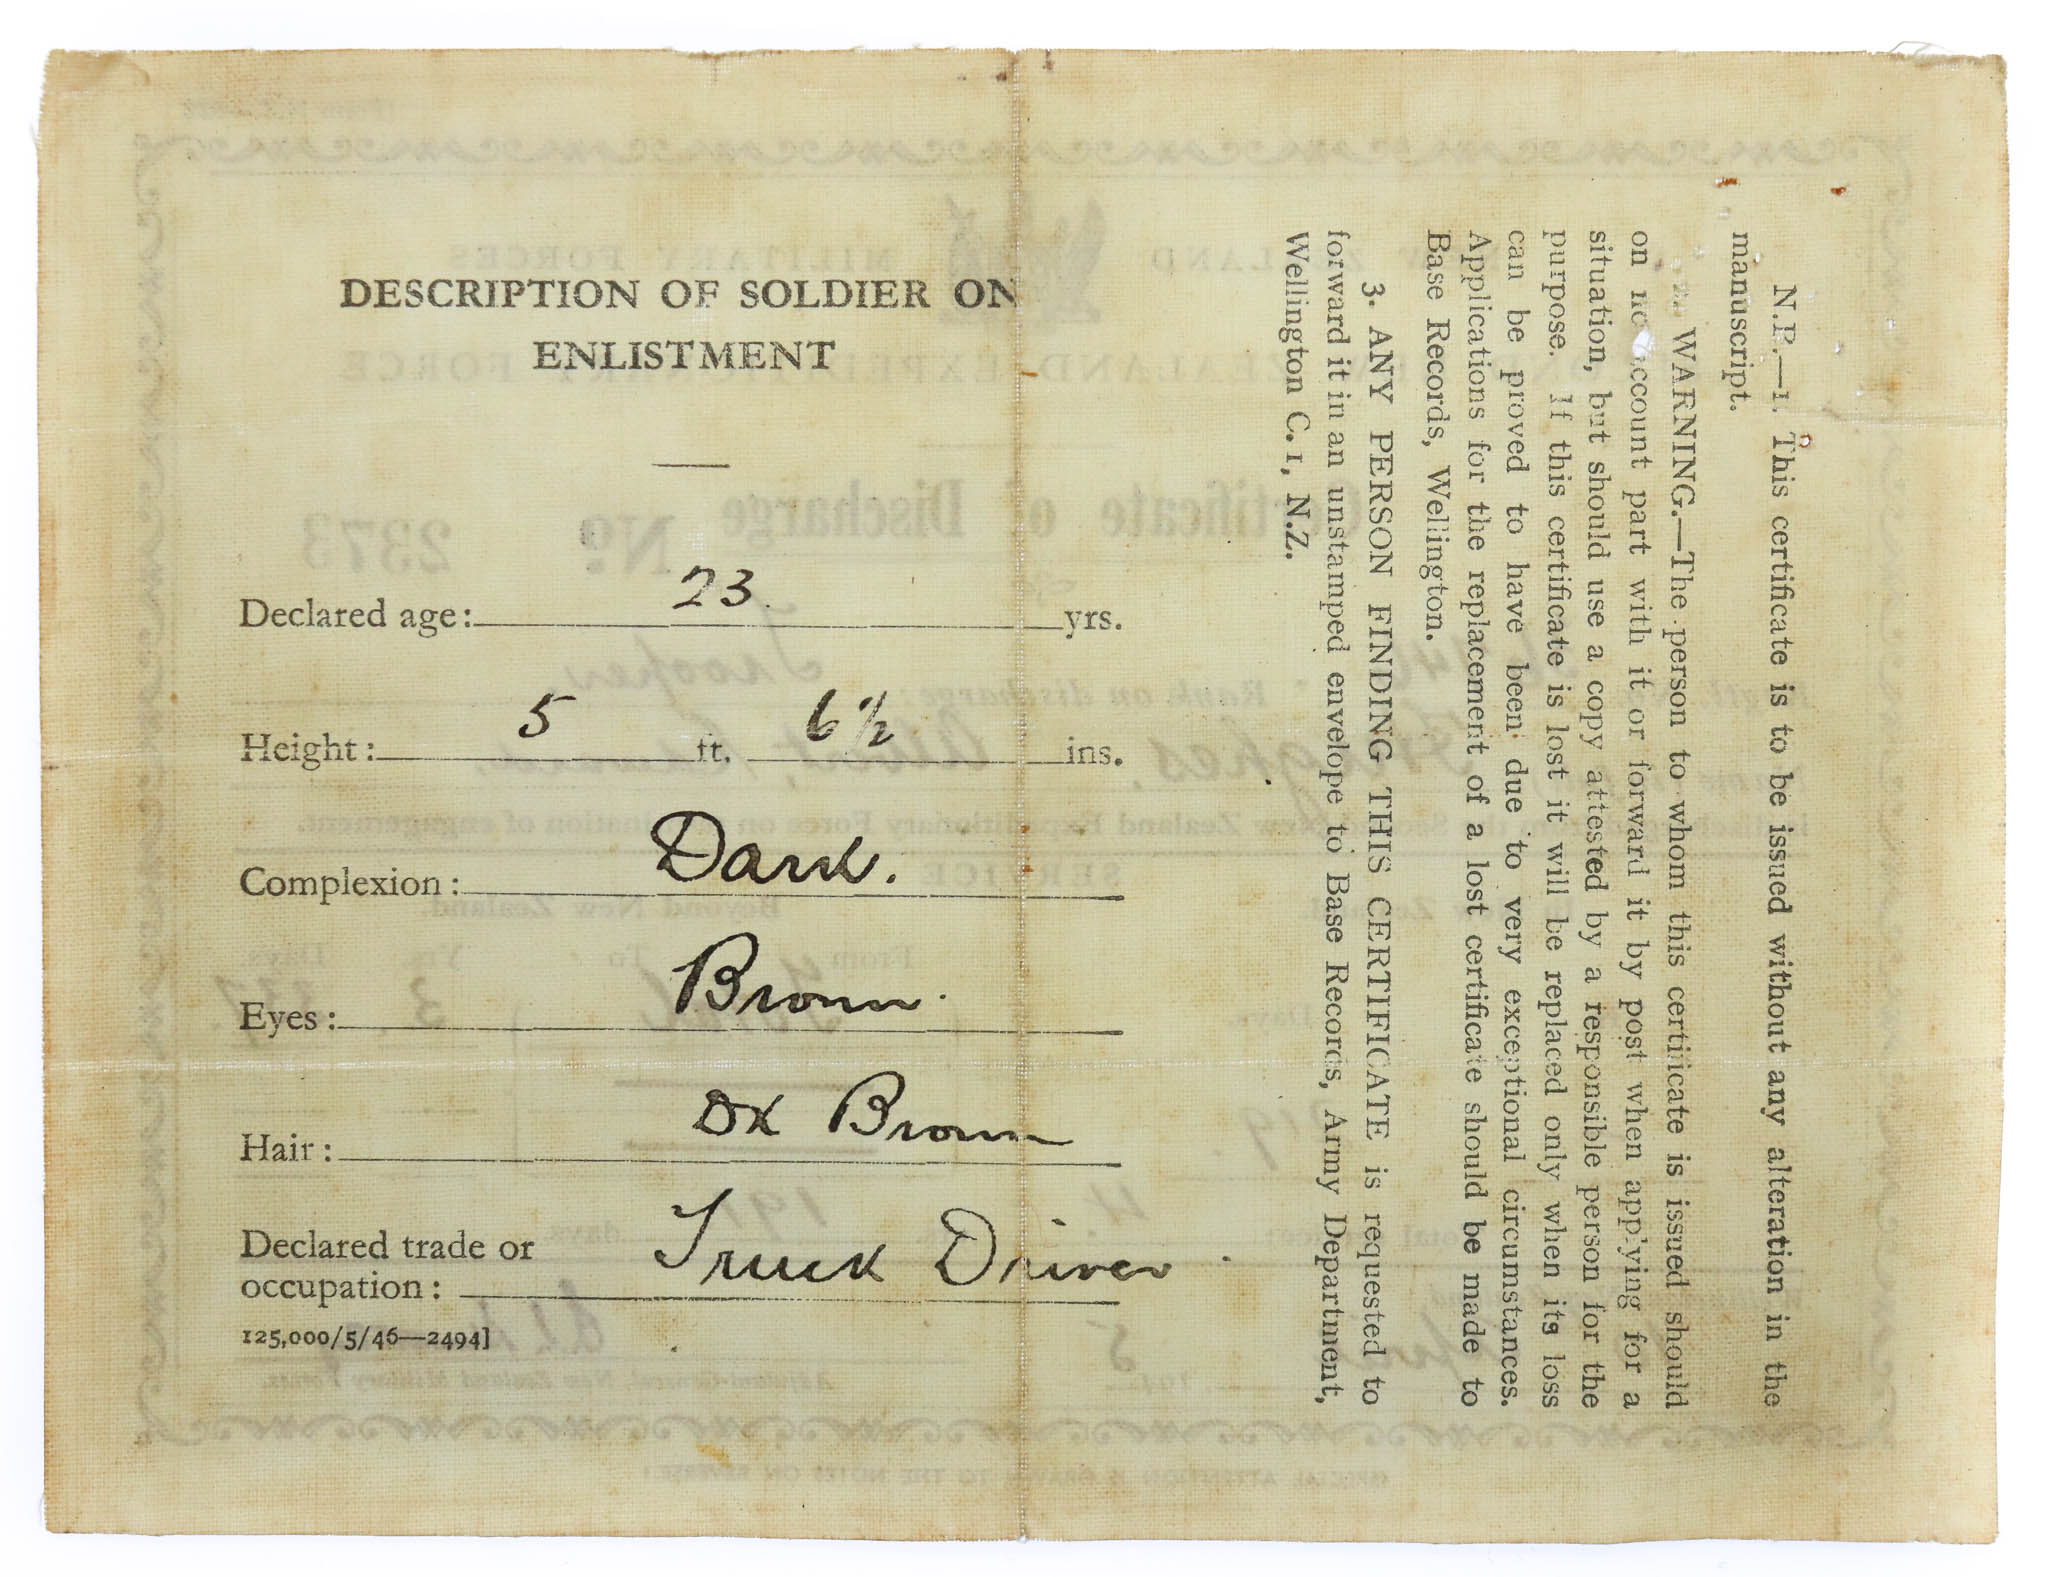 DESCRIPTION OF SOLDIER ON
ENLISTMENT
Declared age: 23 yrs.
Height: 5 ft. 6½ ins.
Complexion: Dark.
Eyes: Brown.
Hair: Dk Brown
Declared trade or
occupation: Truck Driver
125,000/5/46—2494]
N.P.—1. This certificate is to be issued without any alteration in the
manuscript.
2. WARNING.—The person to whom this certificate is issued should
on no account part with it or forward it by post when applying for a
situation, but should use a copy attested by a responsible person for the
purpose. If this certificate is lost it will be replaced only when its loss
can be proved to have been due to very exceptional circumstances.
Applications for the replacement of a lost certificate should be made to
Base Records, Wellington.
3. ANY PERSON FINDING THIS CERTIFICATE is requested to
forward it in an unstamped envelope to Base Records, Army Department,
Wellington C. 1, N.Z.